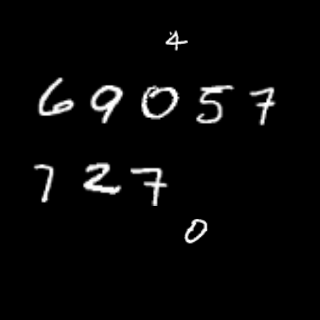 4
69057
727
0